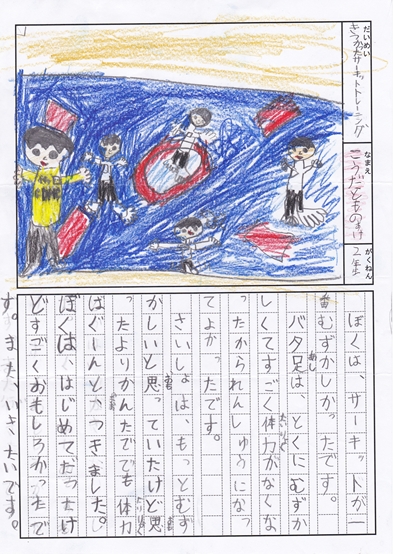 だいめい
きつかたサーキットトレーニング
なまえ
がくねん
2年生
ぼくは、サーキットが一
番むずかしかったです。
バタ足は、とくにむずか
あし
しくてすごく体力がなくな
たいりょく
ったかられんしゅうになっ
てよかったです。
さいしょは、もっとむず
かしいと思っていたけど思
ったよりかんたんででも体力
はぐーんとつきました。
ぼくは、はじめてだったけ
どすごくおもしろかったで
す。また、いきたいです。